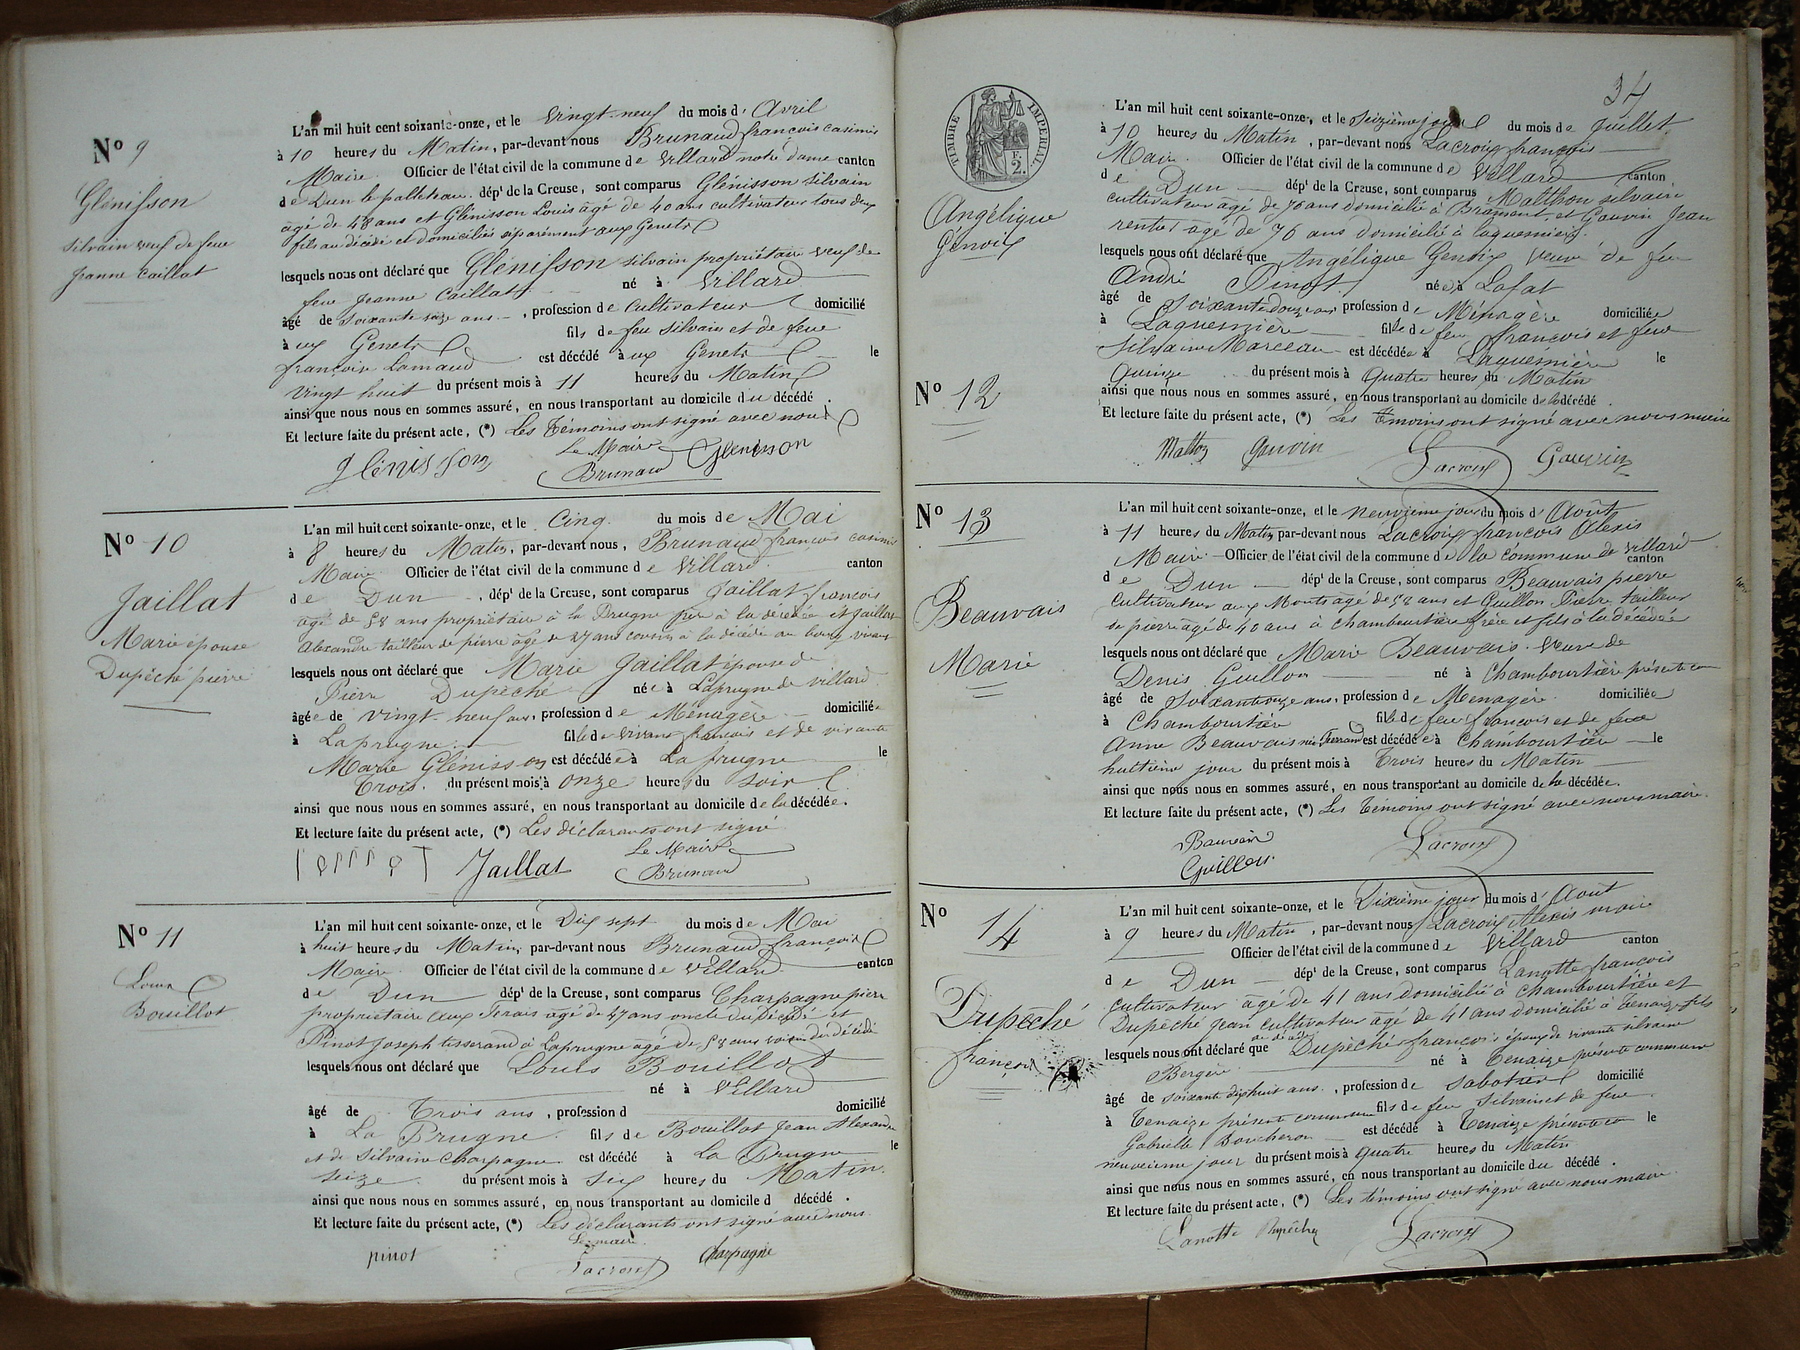 Nº 9
Glénisson
Silvain veuf de feue
Jeanne Caillat
L'an mil huit cent soixante-onze, et le Vingt-neuf du mois d' Avril
à 10 heures du Matin, par-devant nous Brunaud françois casimir
Maire Officier de l'état civil de la commune de Villard notre dame canton
de Dun le palleteau. dépt de la Creuse, sont comparus Glénisson silvain
âgé de 48 ans et Glénisson Louis âgé de 40 ans cultivateur tous deux
fils au décédé et domiciliés séparément aux Genets
lesquels nous ont déclaré que Glénisson silvain propriétaire veuf de
feue Jeanne Caillat né à Villard
âgé de soixante seize ans, profession de Cultivateur domicilié
à ux Genets fils de feu silvain et de feue
françoise Lamaud est décédé à ux Genets le
vingt huit du présent mois à 11 heures du Matin
ainsi que nous nous en sommes assuré, en nous transportant au domicile du décédé.
Et lecture faite du présent acte, (*) Les Témoins ont signé avec nous
Glénisson Le Maire Glénisson
Brunaud
Nº 10
Jaillat
Marie épouse
Dupêché pierre
L'an mil huit cent soixante-onze, et le Cinq du mois de Mai
à 8 heures du Matin, par-devant nous, Brunaud françois casimir
Maire Officier de l'état civil de la commune de Villard canton
de Dun, dépt de la Creuse, sont comparus Jaillat françois
âgé de 58 ans propriétaire à la Prugne père à la décédée et Jaillat
Alexandre tailleur de pierre âgé de 27 ans cousin à la décédé au bourg
lesquels nous ont déclaré que Marie Jaillat épouse de
Pierre Dupêché née à Laprugne de villard
âgée de vingt-neuf ans, profession de Ménagère domiciliée
à Laprugne fille de vivant françois et de vivante
Marie Glénisson est décédée à La prugne le
Trois du présent mois à onze heure du soir
ainsi que nous nous en sommes assuré, en nous transportant au domicile de la décédée.
Et lecture faite du présent acte, (*) Les déclarants ont signé
Jaillat Le Maire
Brunaud
Nº 11
Louis
Bouillot
L'an mil huit cent soixante-onze, et le Dix sept du mois de Mai
à huit heures du Matin, par-devant nous Brunaud françois
Maire Officier de l'état civil de la commune de Villard canton
de Dun dépt de la Creuse, sont comparus Charpagne pierre
propriétaire aux Terais âgé de 47 ans oncle du Décédé et
Pinot Joseph tisserand à Laprugne âgé de 58 ans voisin du décédé
lesquels nous ont déclaré que Louis Bouillot
né à Villard
âgé de Trois ans, profession d domicilié
à La Prugne fils de Bouillot Jean Alexandre
et de Silvaine Charpagne est décédé à La Prugne le
seize du présent mois à six heures du Matin.
ainsi que nous nous en sommes assuré, en nous transportant au domicile d décédé.
Et lecture faite du présent acte, (*) Les déclarants ont signé avec nous.
Le maire
pinot Lacroix Charpagne
34
TIMBRE IMPERIAL
F.
2.
Angélique
Génoix
Nº 12
L'an mil huit cent soixante-onze, et le Seizième jour du mois de Juillet
à 10 heures du Matin, par-devant nous Lacroix françois
Maire Officier de l'état civil de la commune de Villard canton
de Dun dépt de la Creuse, sont comparus Malthon silvain
cultivateur âgé de 70 ans domicilié à Brémont et Gauvin Jean
rentier âgé de 76 ans domicilié à laquesnière
lesquels nous ont déclaré que Angélique Genoix veuve de feu
André Pinot née à Lafat
âgé de soixante douze ans profession de Ménagère domiciliée
à Laquesnière fille de feu françois et feue
Silvaine Marceau est décédée à Laquesnière le
Quinze du présent mois à Quatre heures du Matin
ainsi que nous nous en sommes assuré, en nous transportant au domicile de la décédé
Et lecture faite du présent acte, (*) Les témoins ont signé avec nous maire
Malton Gauvin Lacroix Gauvin
Nº 13
Beauvais
Marie
L'an mil huit cent soixante-onze, et le neuvième jour du mois d' Août
à 11 heures du Matin par-devant nous Lacroix françois Alexis
Maire Officier de l'état civil de la commune de la commune de Villard canton
de Dun dépt de la Creuse, sont comparus Beauvais pierre
cultivateur aux Monts âgé de 58 ans et Guillon Pierre tailleur
de pierre âgé de 40 ans à chambourtière frère et fils à la décédée
lesquels nous ont déclaré que Marie Beauvais veuve de
Denis Guillon né à Chambourtière présente com
âgé de soixante onze ans, profession de Menagère domiciliée
à Chambourtière fille de feu françois et de feue
Anne Beauvais née Ferrand est décédée à Chambourtière le
huitième jour du présent mois à Trois heures du Matin
ainsi que nous nous en sommes assuré, en nous transportant au domicile de la décédée.
Et lecture faite du présent acte, (*) Les témoins ont signé avec nous maire.
Bauvais Lacroix
Guillon
Nº 14
Dupêché
françois
L'an mil huit cent soixante-onze, et le Dixième jour du mois d' Août
à 9 heures du Matin, par-devant nous Lacroix Alexis maire
Officier de l'état civil de la commune de Villard canton
de Dun dépt de la Creuse, sont comparus Lanotte françois
cultivateur âgé de 41 ans domicilié à Chambourtière et
Dupêché jean cultivateur âgé de 41 ans domicilié à Tenaize fils
du décédé
lesquels nous ont déclaré que Dupêché françois époux de vivante silvaine
Bergère né à Tenaize présente commune
âgé de soixante dix huit ans, profession de sabotier domicilié
à Tenaize présente commune fils de feu Silvain et de feue
Gabrielle Boucheron est décédé à Tenaize présente co le
neuvième jour du présent mois à quatre heures du Matin
ainsi que nous nous en sommes assuré, en nous transportant au domicile du décédé.
Et lecture faite du présent acte, (*) Les témoins ont signé avec nous maire
Lanotte Dupêché Lacroix